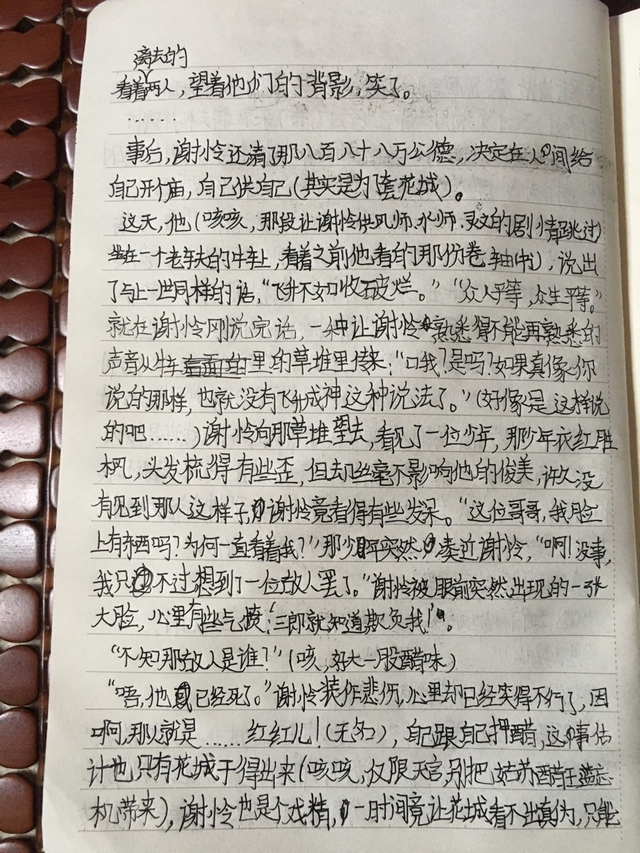 离去的
看着两人，望着他们的背影，笑了。
……
事后，谢怜还清了那八百八十八万公德，决定在人间给
自己开个庙，自己供自己（其实是为了套花城）。
这天，他（咳咳，那段让谢怜供风师、水师、灵文的剧情跳过）
坐在一个老车夫的牛车上，看着之前他看的那份卷轴（中），说出
了与上一世同样的话，“飞升不如收破烂。”“众人平等，众生平等。”
就在谢怜刚说完话，一种让谢怜熟悉得不能再熟悉的
声音从牛车里的草堆里传来：“口我？是吗？如果真像你
说的那样，也就没有飞升成神这种说法了。”（好像是这样说
的吧……）谢怜向那草堆望去，看见了一位少年，那少年衣红胜
枫，头发梳得有些歪，但却丝毫不影响他的俊美，许久没
有见到那人这样子，谢怜竟看得有些发呆。“这位哥哥，我脸
上有东西吗？为何一直看着我？”那少年突然凑近谢怜，“啊！没事，
我只不过想到了一位故人罢了。”谢怜被眼前突然出现的一张
大脸，心里有些气愤：‘三郎就知道欺负我！’。
“不知那故人是谁？”（咳，好大一股醋味）
“唔，他已经死了。”谢怜装作悲伤，心里却已经笑得不行了，因
啊，那人就是……红红儿！（无知），自己跟自己押醋，这事估
计也只有花城干得出来（咳咳，仅限天官，别把姑苏醋王蓝忘
机带来），谢怜也是个戏精，一时间竟让花城看不出真伪，只能